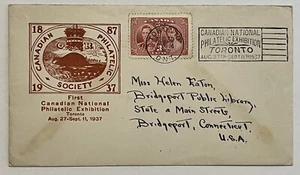 18 87
CANADIAN PHILATELIC
SOCIETY
19 37
First
Canadian National
Philatelic Exhibition
Toronto
Aug. 27-Sept. 11, 1937
CANADIAN NATIONAL
PHILATELIC EXHIBITION
TORONTO
AUG. 27TH-SEPT. 11TH 1937
Miss Helen Eaton,
Bridgeport Public Library,
State & Main Streets,
Bridgeport, Connecticut.
U.S.A.